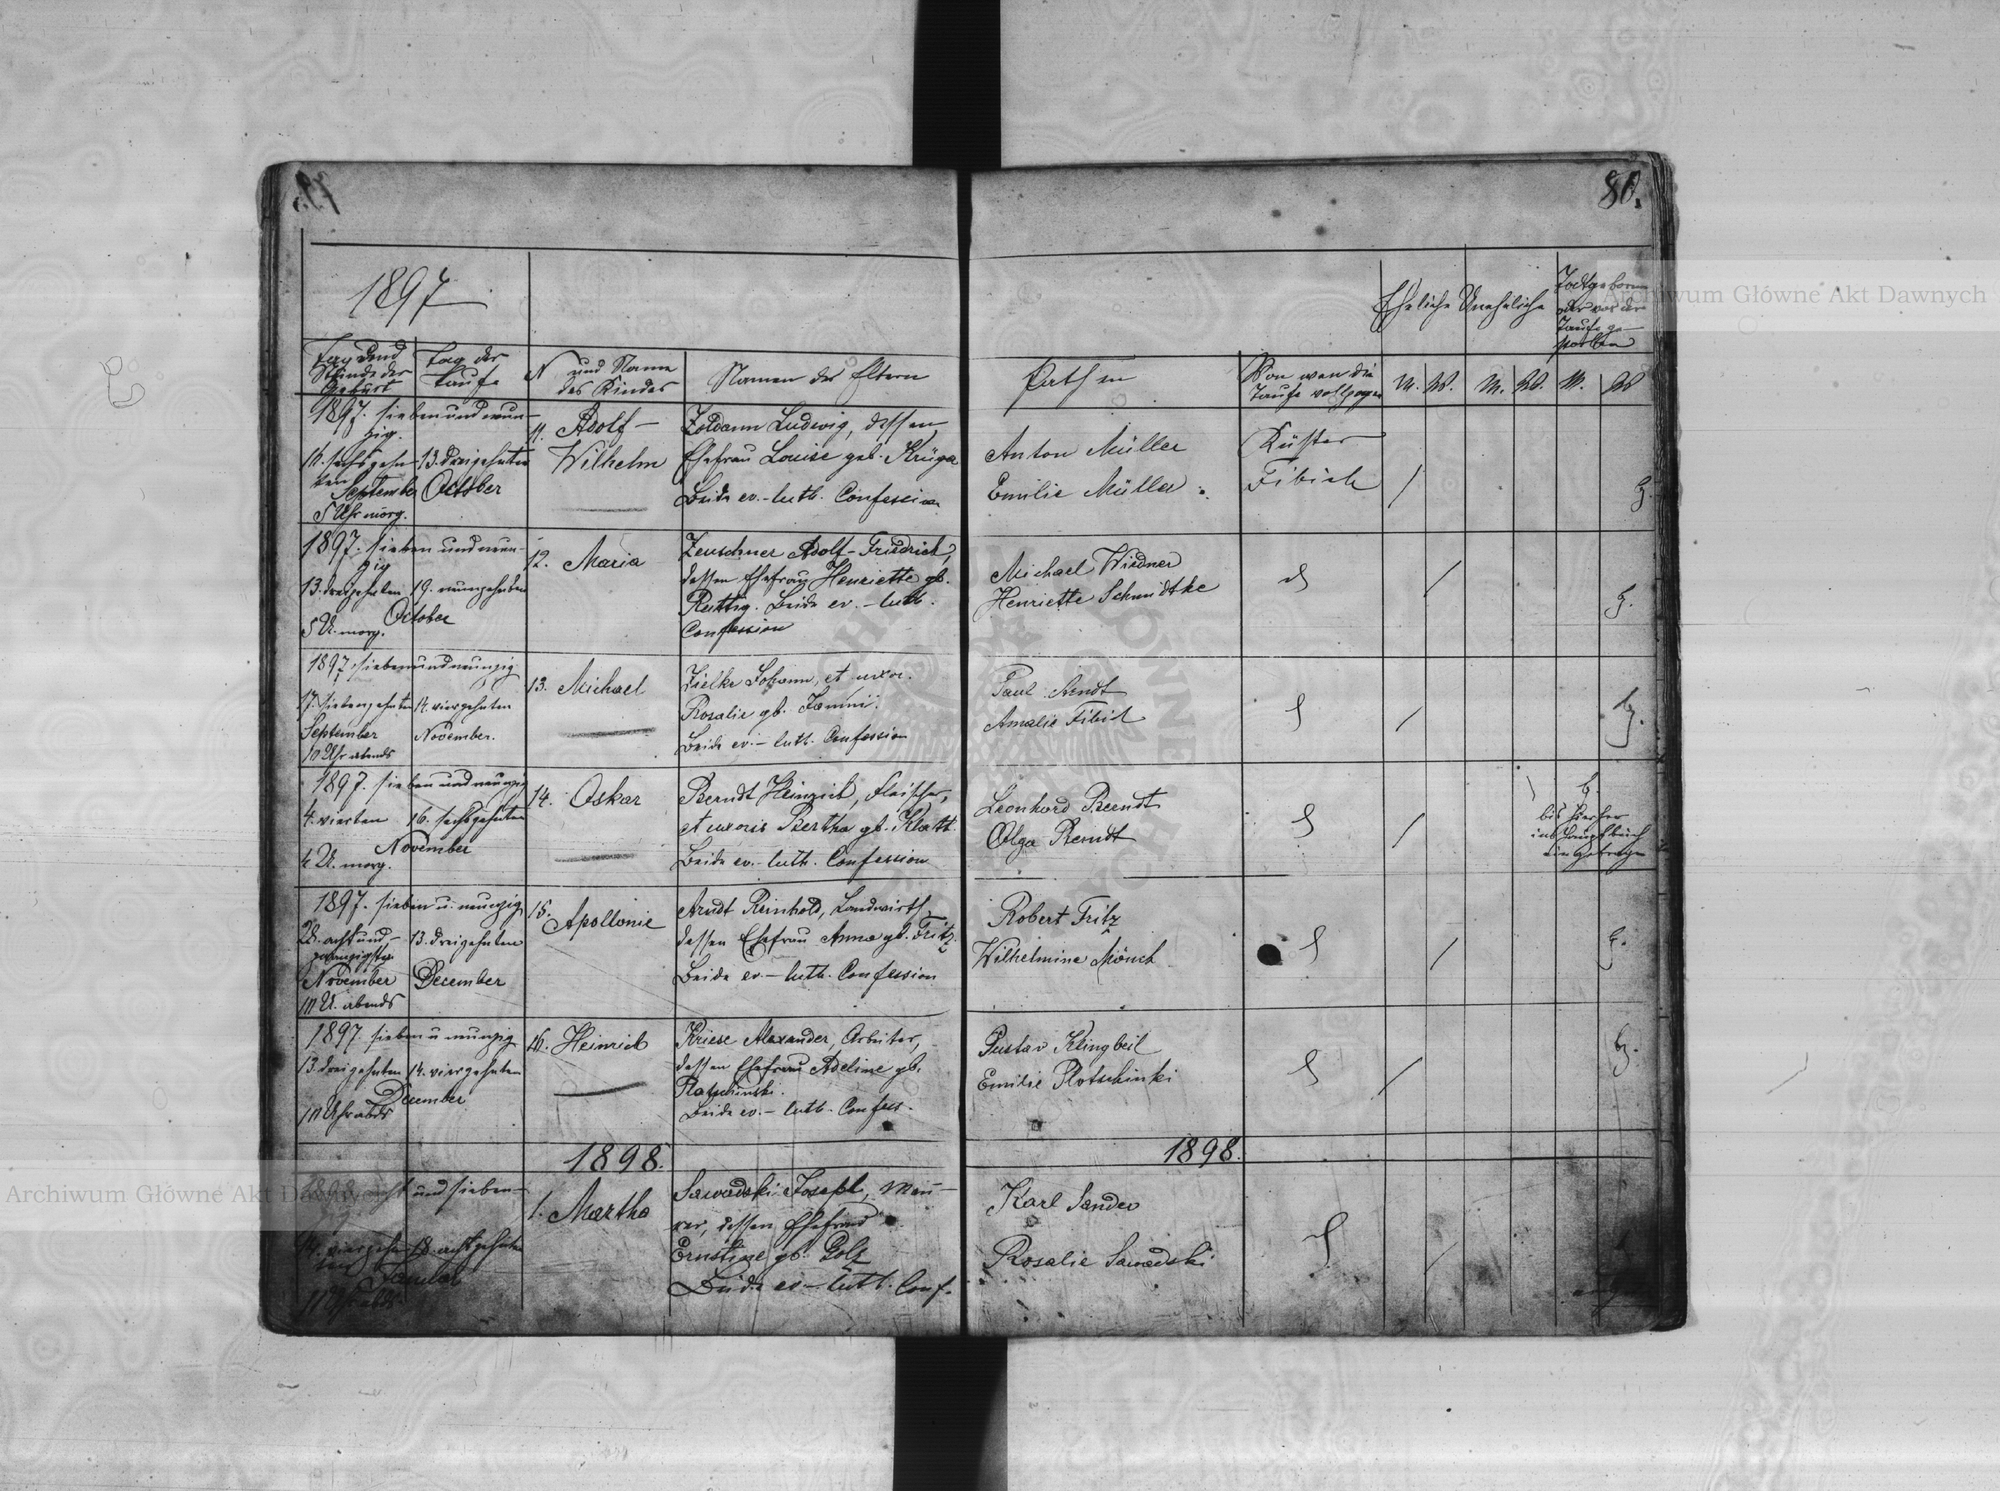 80.
1897
Ehrliche Uneheliche
Todtgeborne
oder vor der
Taufe ge-
storben
Tag und
Stunde der
Geburt
Tag der
Taufe
N
und Name
des Kindes
Namen der Eltern
Pathen
Von wem die
Taufe vollzogen
M. W. M. W. M. W
1897. siebenundneun-
zig.
sechszehn-
ten
September
5 Uhr morg.
13. dreizehnten
October
11. Adolf-
Wilhelm
Ludwig, dessen
Ehefrau Louise geb. Krüger
Beide ev.-luth. Confession
Anton Müller
Emilie Müller
Küster
Fibich
1897. sieben und neun-
zig
13. dreizehnten 19. neunzehnten
October
5 U. morg.
12. Maria
Zeuschner Adolf-Friedrich,
dessen Ehefrau Henriette gb.
Ruttig. Beide ev.-luth.
Confession
Michael Wiedner
Henriette Schmidtke
1897 siebenundneunzig
17. siebenzehnten 14. vierzehnten
September November.
10 Uhr abends
13. Michael
Zielke Johann, et uxor.
Rosalie gb.
Beide ev.-luth. Confession
Paul Arndt
Amalie Fibich
1897. sieben und neunzig
4. vierten 16. sechszehnten
November
U. morg.
14. Oskar
Berndt Heinrich, Fleischer,
et uxoris Bertha gb. Klatt
Beide ev.-luth. Confession
Leonhard Berndt
Olga Berndt
bis hierher
ins Hauptbuch
eingetragen
1897. sieben u. neunzig
28. achtund-
zwanzigsten
November
U. abends
13. dreizehnten
December
15. Apollonie
Arndt Reinhold, Landwirth
dessen Ehefrau Anna gb. Fritz.
Beide ev.-luth. Confession
Robert Fritz
Wilhelmine Mönch
1897. sieben u neunzig
13. dreizehnten 14. vierzehnten
December
Uhr abds
16. Heinrich
Kriese Alexander, Arbeiter,
dessen Ehefrau Adeline gb.
Plotschinski.
Beide ev.-luth. Confess.
Gustav Klingbeil
Emilie Plotschinki
1898. 1898.
und sieben-
14. vierzehn-
ten
18. achtzehnten
Januar
11 Uhr abds.
1. Martha
Sawadski Joseph, Mau-
rer, dessen Ehefrau
Ernstine gb. Golz
Beide ev-luth. Conf.
Karl Sander
Rosalie Sawadski
Archiwum Główne Akt Dawnych
Archiwum Główne Akt Dawnych